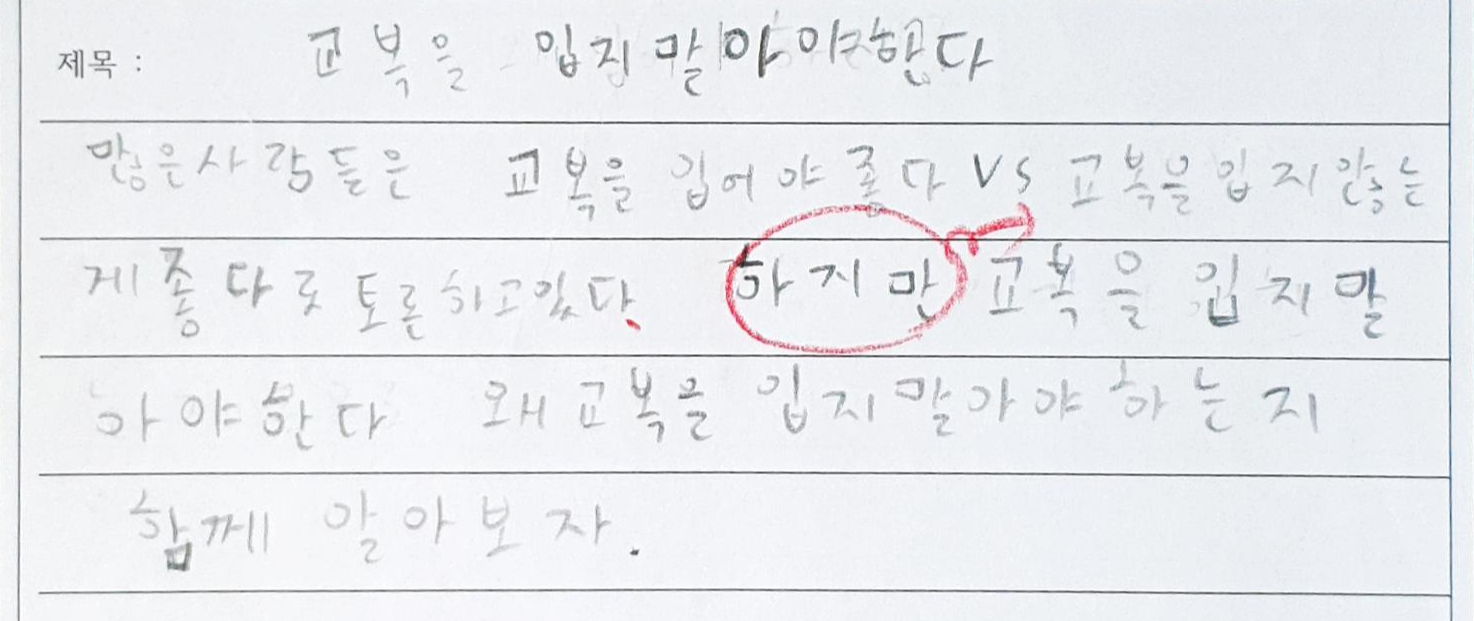 제목 : 교복을 입지 말아야한다
많은사람들은 교복을 입어야좋다 VS 교복을입지않는
게좋다로 토론하고있다. 하지만 교복을 입지말
아야한다 왜교복을 입지말아야하는지
함께 알아보자.